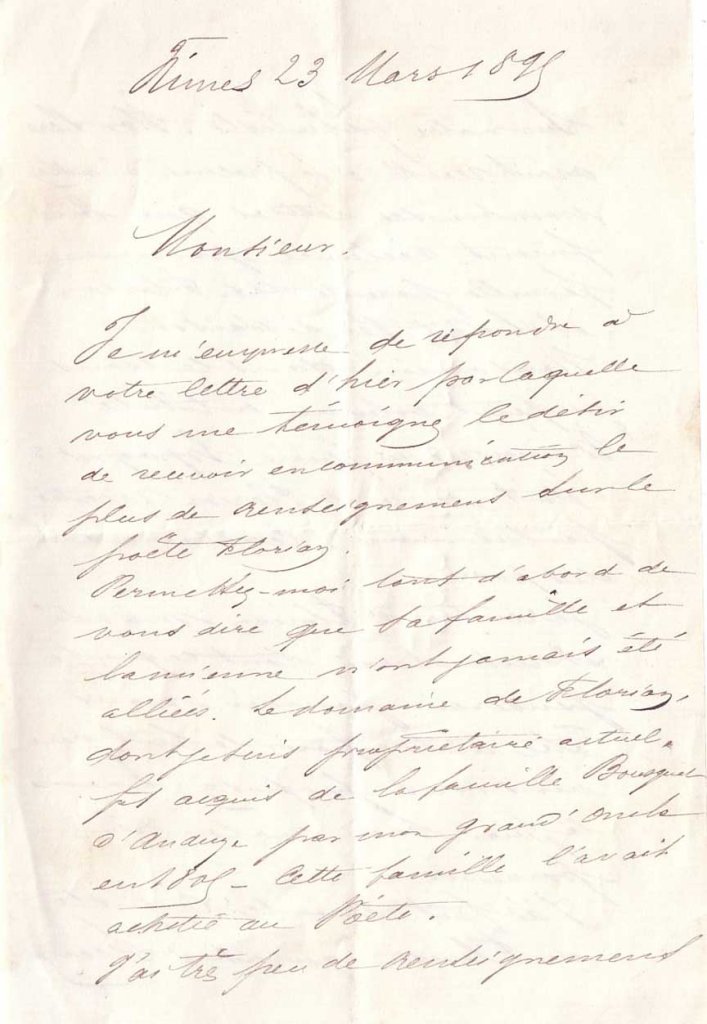 Nîmes 23 Mars 1895
Monsieur.
Je m'empresse de répondre à
votre lettre d'hier par laquelle
vous me témoignez le désir
de recevoir en communication le
plus de renseignemens sur le
poëte Florian.
Permettez-moi tout d'abord de
vous dire que sa famille et
la mienne n'ont jamais été
alliées. Le domaine de Florian,
dont je suis propriétaire actuel,
fut acquis de la famille Bousquet
d'Anduze par mon grand'oncle
en 1805 - Cette famille l'avait
acheté au Poëte.
J'ai très peu de renseignemens